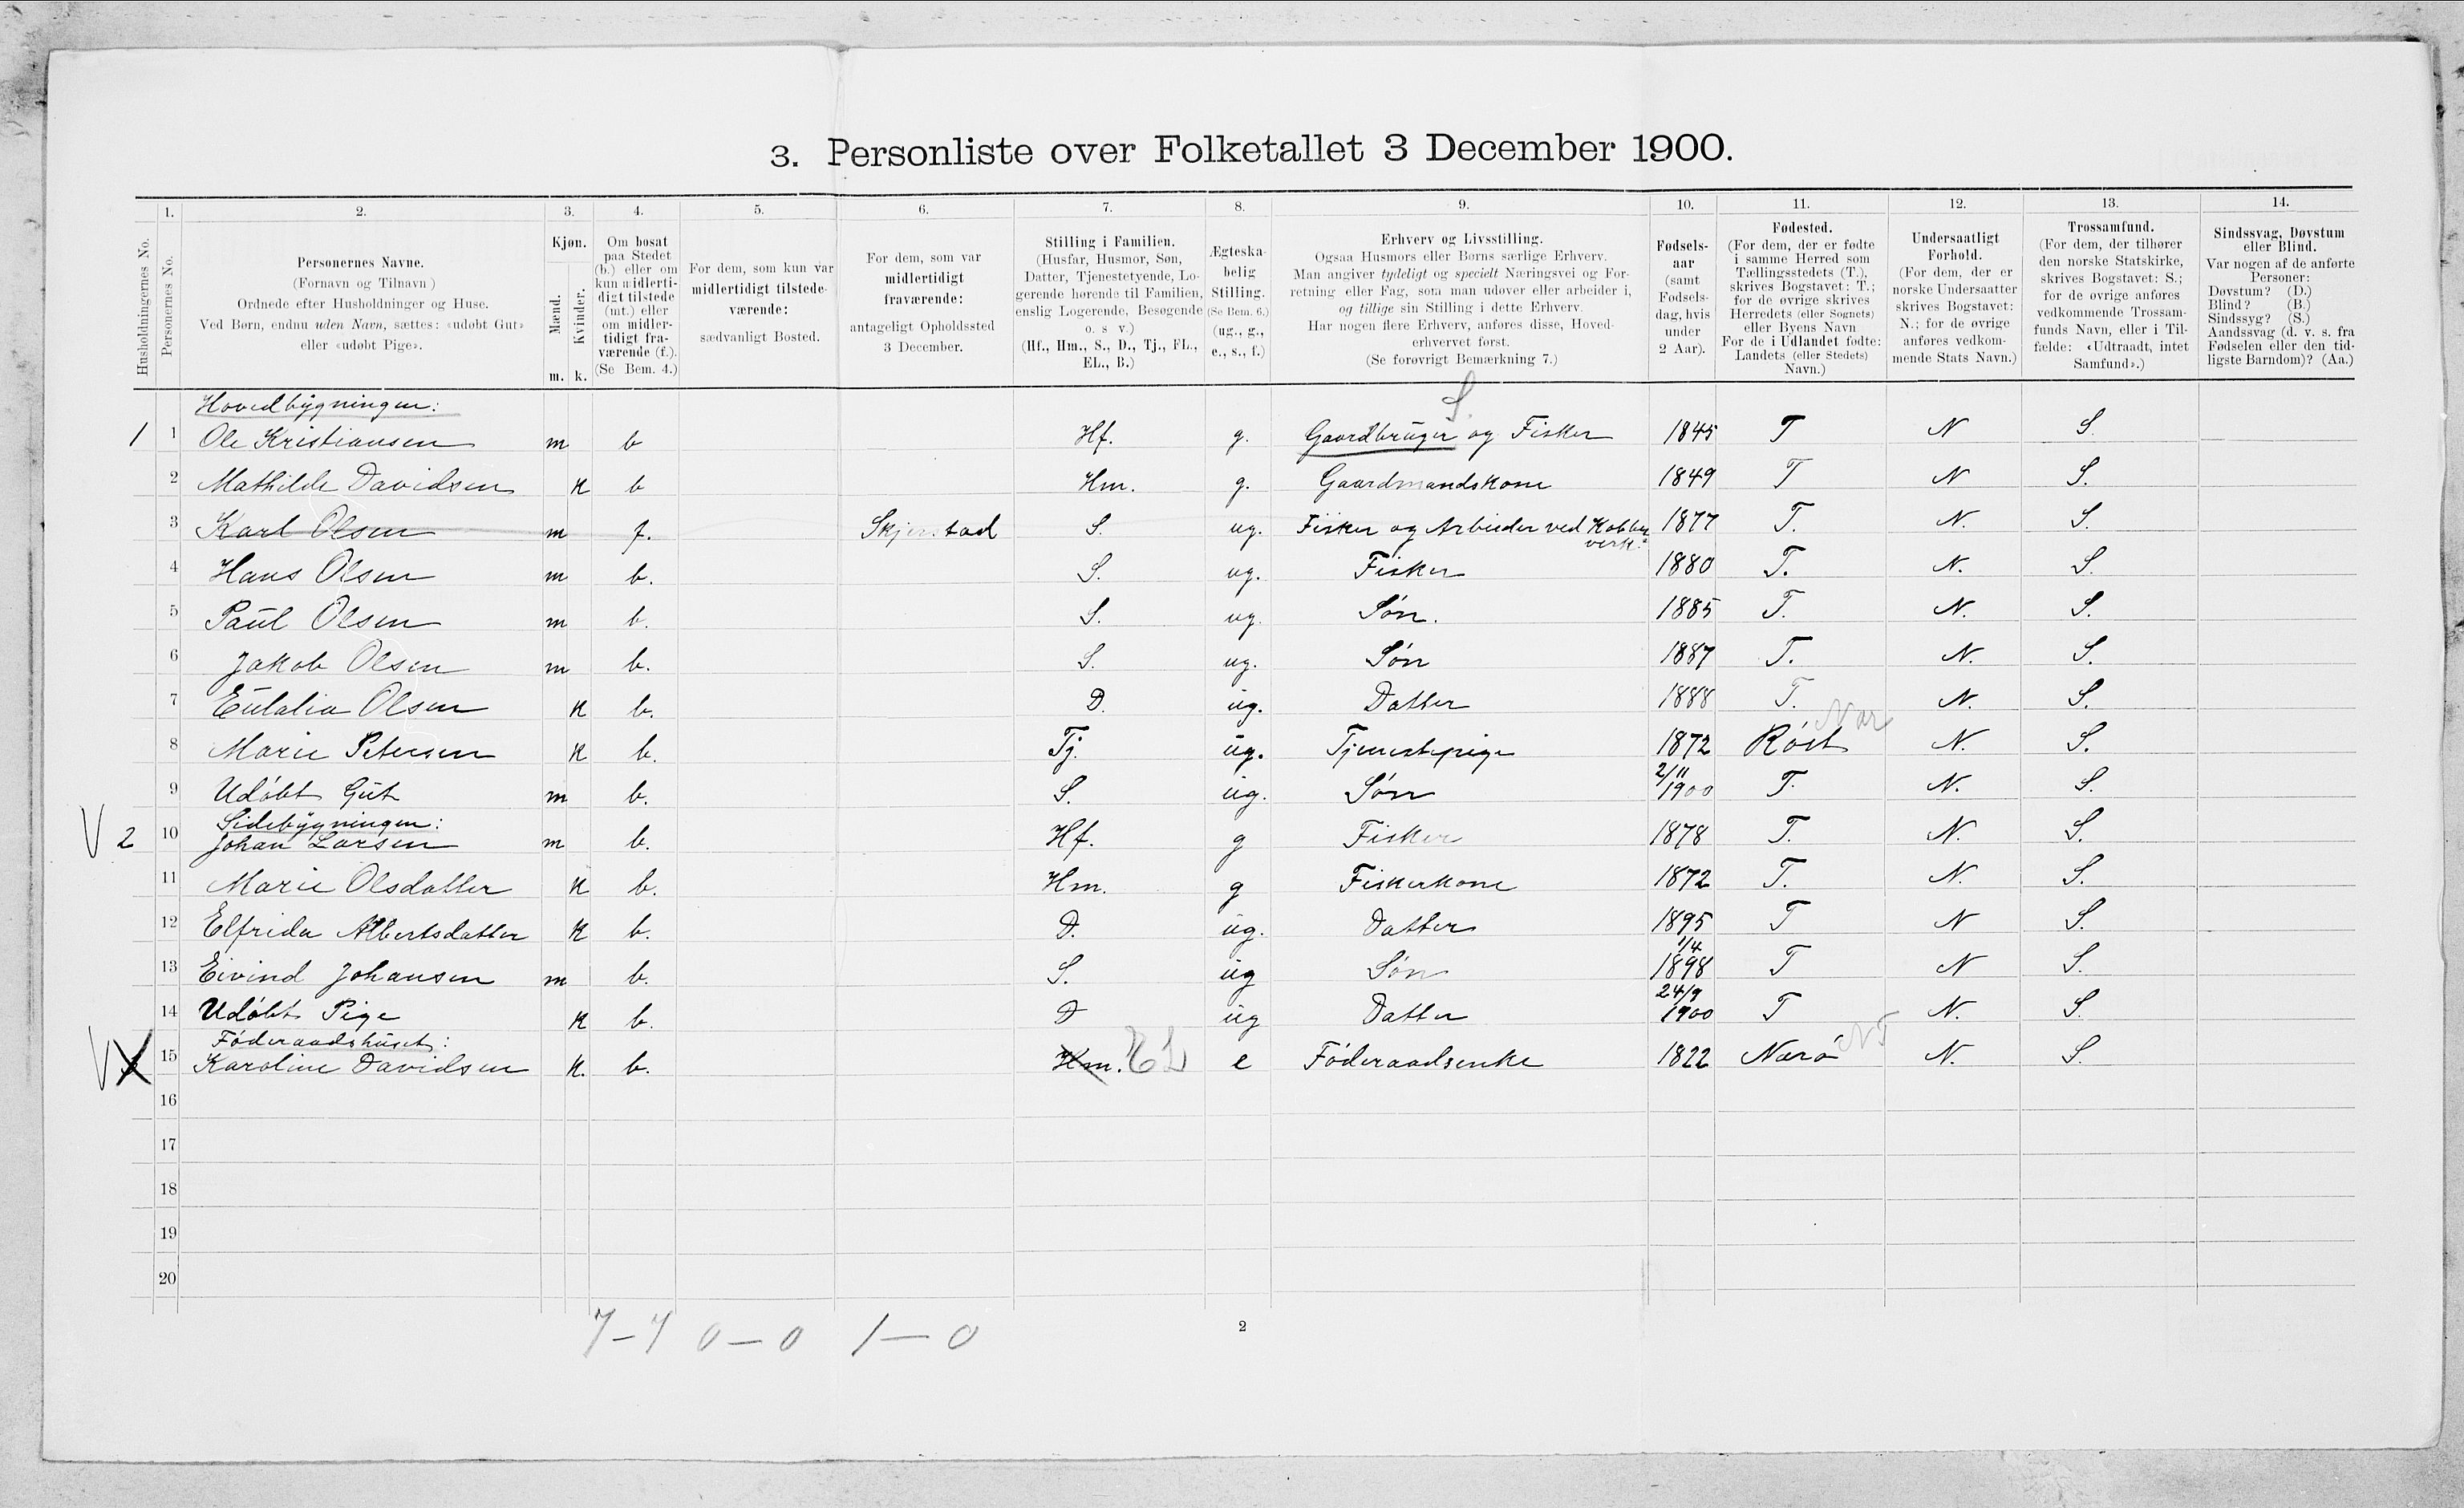 3. Personliste over Folketallet 3 December 1900.
1. 2. 3. 4. 5. 6. 7. 8. 9. 10. 11. 12. 13. 14.
Husholdningernes No.
Personernes No.
Personernes Navne.
(Fornavn og Tilnavn)
Ordnede efter Husholdninger og Huse.
Ved Børn, endnu uden Navn, sættes: «udøbt Gut»
eller «udøbt Pige».
Kjøn.
Mænd.
Kvinder.
m. k.
Om bosat
paa Stedet
(b.) eller om
kun midlerti-
digt tilstede
(mt.) eller
om midler-
tidigt fra-
værende (f.).
(Se Bem. 4.)
For dem, som kun var
midlertidigt tilstede-
værende:
sædvanligt Bosted.
For dem, som var
midlertidigt
fraværende:
antageligt Opholdssted
3 December.
Stilling i Familien.
(Husfar, Husmor, Søn,
Datter, Tjenestetyende, Lo-
gerende hørende til Familien,
enslig Logerende, Besøgende
o. s v.)
(Hf., Hm., S., D., Tj., FL.,
EL., B.)
Ægteska-
belig
Stilling.
(Se Bem. 6.)
(ug., g.,
e., s., f.)
Erhverv og Livsstilling.
Ogsaa Husmors eller Børns særlige Erhverv.
Man angiver tydeligt og specielt Næringsvei og For-
retning eller Fag, som man udøver eller arbeider i,
og tillige sin Stilling i dette Erhverv.
Har nogen flere Erhverv, anføres disse, Hoved-
erhvervet først.
(Se forøvrigt Bemærkning 7.)
Fødsels-
aar
(samt
Fødsels-
dag, hvis
under
2 Aar).
Fødested.
(For dem, der er fødte
i samme Herred som
Tællingsstedets (T.),
skrives Bogstavet: T.;
for de øvrige skrives
Herredets (eller Sognets)
eller Byens Navn
For de i Udlandet fødte:
Landets (eller Stedets)
Navn.)
Undersaatligt
Forhold.
(For dem, der er
norske Undersaatter
skrives Bogstavet:
N.; for de øvrige
anføres vedkom-
mende Stats Navn.)
Trossamfund.
(For dem, der tilhører
den norske Statskirke,
skrives Bogstavet: S.;
for de øvrige anføres
vedkommende Trossam-
funds Navn, eller i Til-
fælde: «Udtraadt, intet
Samfund».)
Sindssvag, Døvstum
eller Blind.
Var nogen af de anførte
Personer:
Døvstum? (D.)
Blind? (B.)
Sindssyg? (S.)
Aandssvag (d. v. s. fra
Fødselen eller den tid-
ligste Barndom)? (Aa.)
Hovedbygningen: S.
1 1 Ole Kristiansen m b Hf. g. Gaardbruger og Fisker 1845 T N S.
2 Mathilde Davidsen k b Hm. g. Gaardmandskone 1849 T N S.
3 Karl Olsen m f. Skjerstad S. ug. Fisker og Arbeider ved Kobber 1877 T. N. S.
verk.
4 Hans Olsen m b. S. ug. Fisker 1880 T. N. S.
5 Paul Olsen m b. S. ug. Søn. 1885 T. N. S.
6 Jakob Olsen m b. S. ug. Søn 1887 T. N. S.
7 Eulalia Olsen k b. D. ug. Datter 1888 T. N. S.
8 Marie Petersen k b. Tj. ug. Tjenestepige 1872 Röst N. S.
2/11
9 Udöbt Gut m b. S. ug. Søn 1900 T. N. S.
Sidebygningen:
V 2 10 Johan Larsen m b. Hf. g Fisker 1878 T. N. S.
11 Marie Olsdatter k b. Hm. g Fiskerkone 1872 T. N. S.
12 Elfrida Albertsdatter k b. D. ug. Datter 1895 T N S.
1/4
13 Eivind Johansen m b. S. ug Søn 1898 T N S.
24/9
14 Udöbt Pige k b. D ug Datter 1900 T N. S.
Föderaadshuset: NT
V 15 Karoline Davidsen k. b. Hm. EL e Föderaadsenke 1822 Nærö N. S.
16
17
18
19
20
7-7 0-0 1-0
2